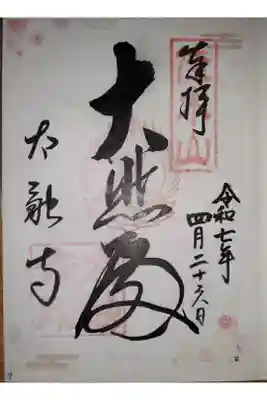 奉拝
令和七年
四月二十六日
大悲殿
太融寺